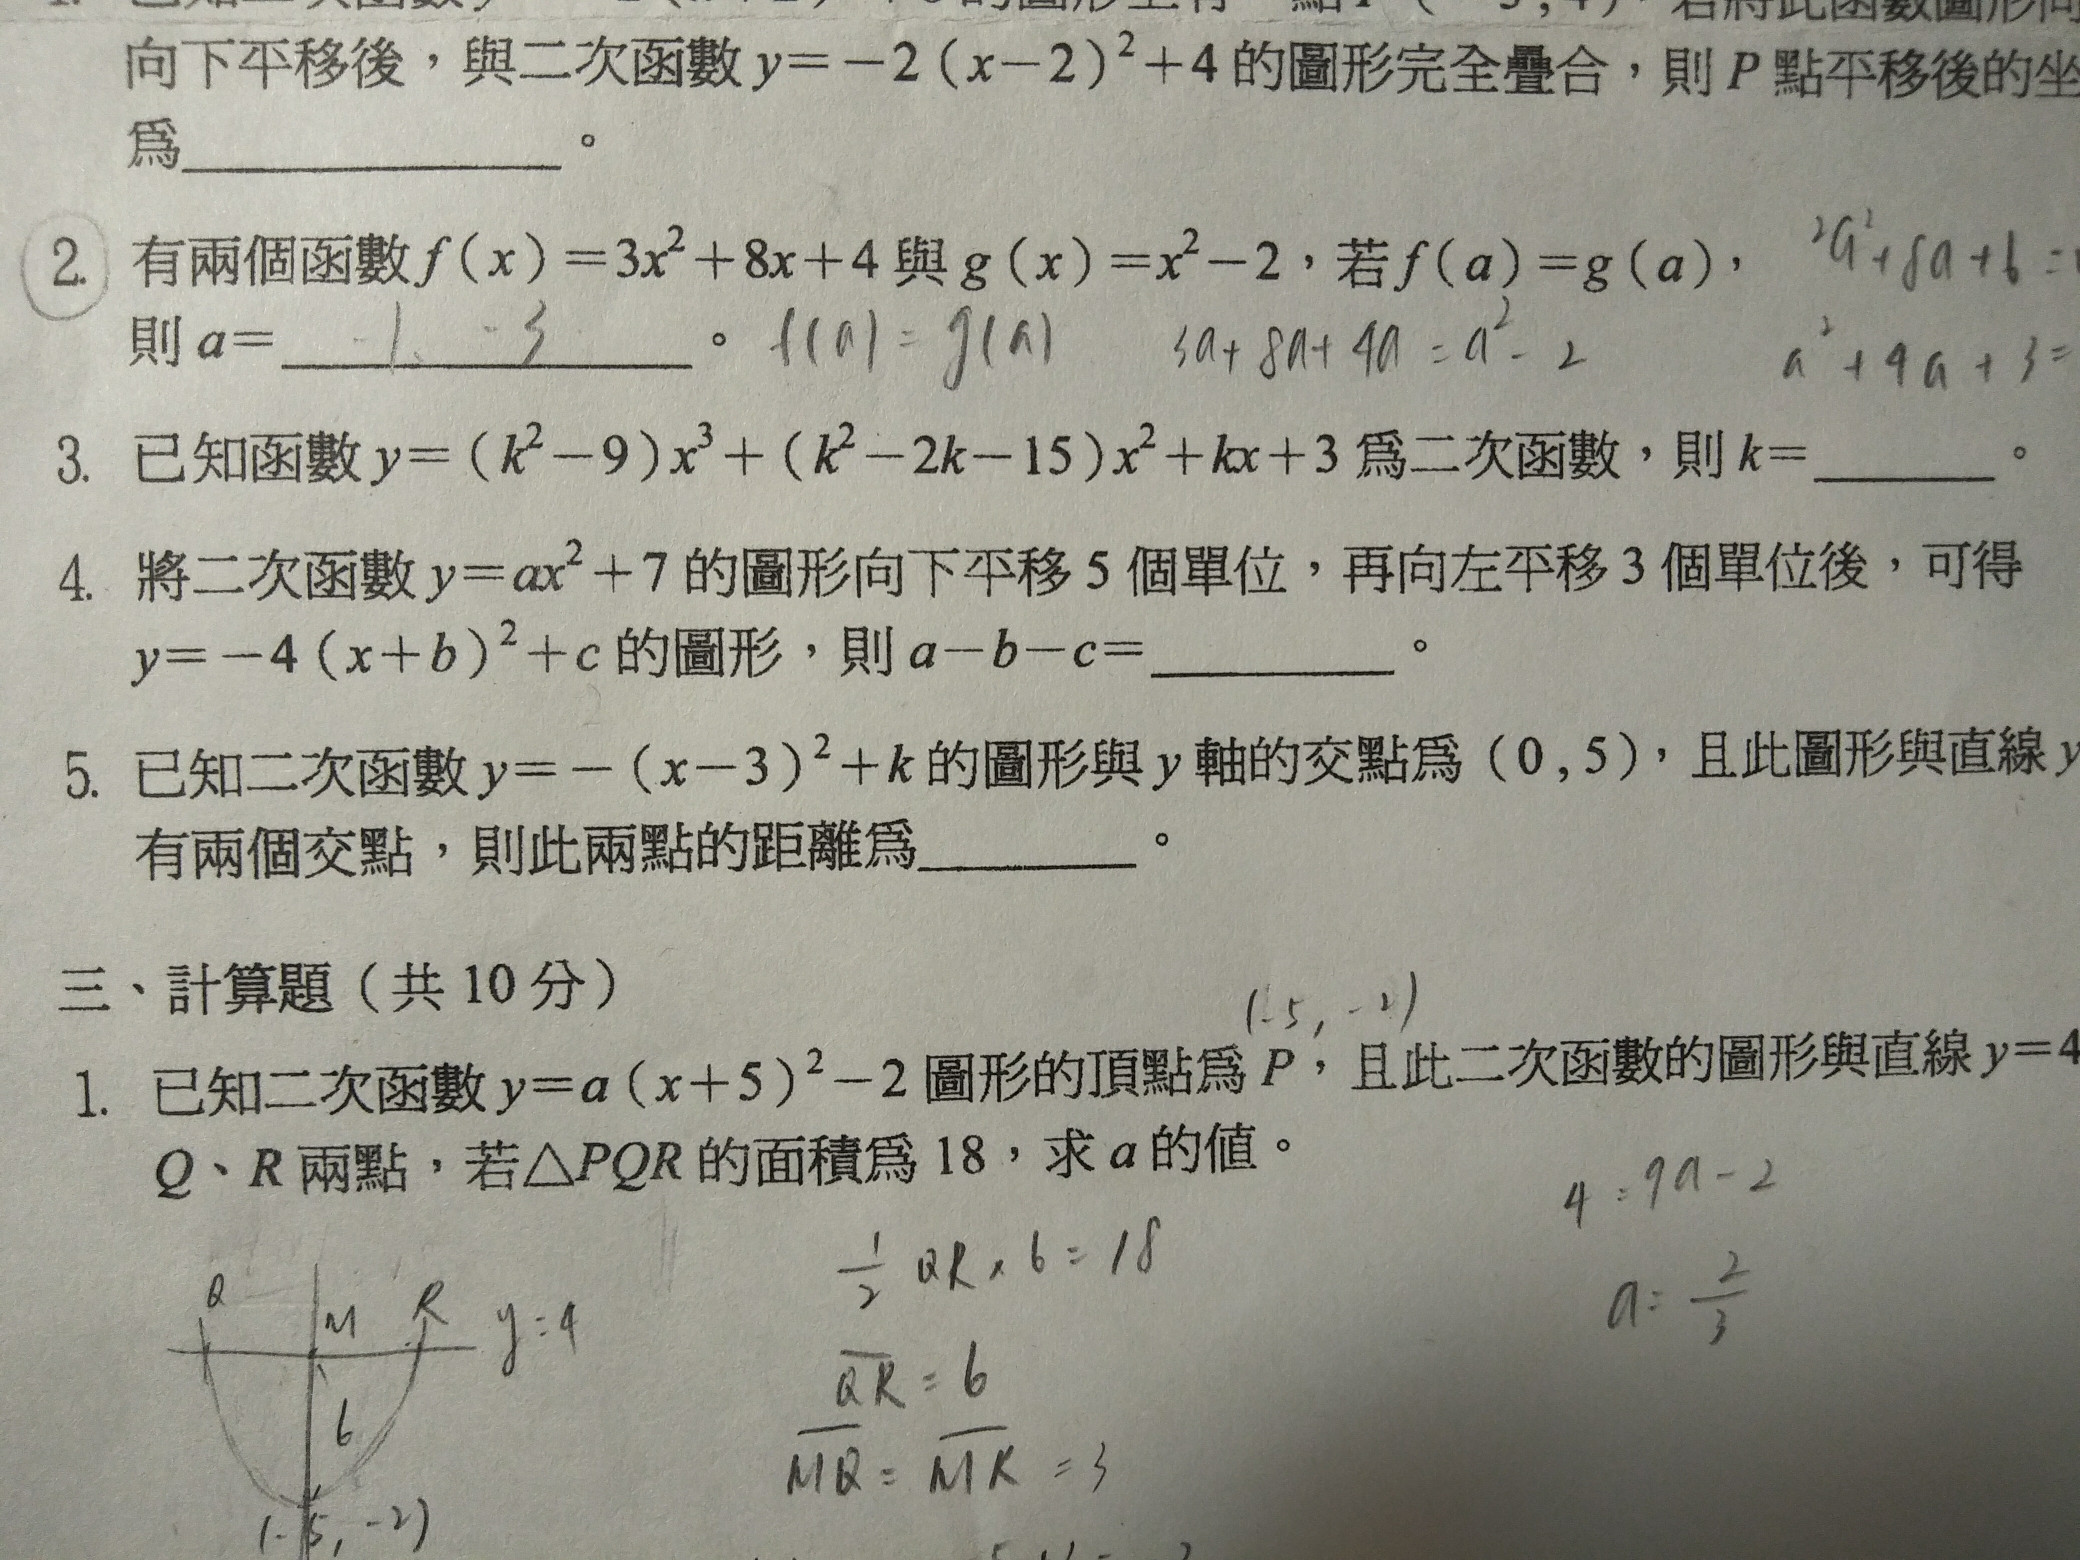 向下平移後,與二次函數 y=-2(x-2)²+4 的圖形完全疊合,則 P 點平移後的坐
為____________。
2. 有兩個函數 f(x)=3x²+8x+4 與 g(x)=x²-2,若 f(a)=g(a), 2a²+8a+6=
則 a= -1、-3 。 f(a)=g(a) 3a+8a+4a=a²-2 a²+4a+3=
3. 已知函數 y=(k²-9)x³+(k²-2k-15)x²+kx+3 為二次函數,則 k=______。
4. 將二次函數 y=ax²+7 的圖形向下平移 5 個單位,再向左平移 3 個單位後,可得
y=-4(x+b)²+c 的圖形,則 a-b-c=________。
5. 已知二次函數 y=-(x-3)²+k 的圖形與 y 軸的交點為(0,5),且此圖形與直線 y
有兩個交點,則此兩點的距離為________。
三、計算題(共 10 分)
(-5, -2)
1. 已知二次函數 y=a(x+5)²-2 圖形的頂點為 P,且此二次函數的圖形與直線 y=4
Q、R 兩點,若△PQR 的面積為 18,求 a 的值。
4=9a-2
1/2 QR×6=18
a=2/3
Q M R y=4
QR=6
6
MQ=MR=3
(-5, -2)